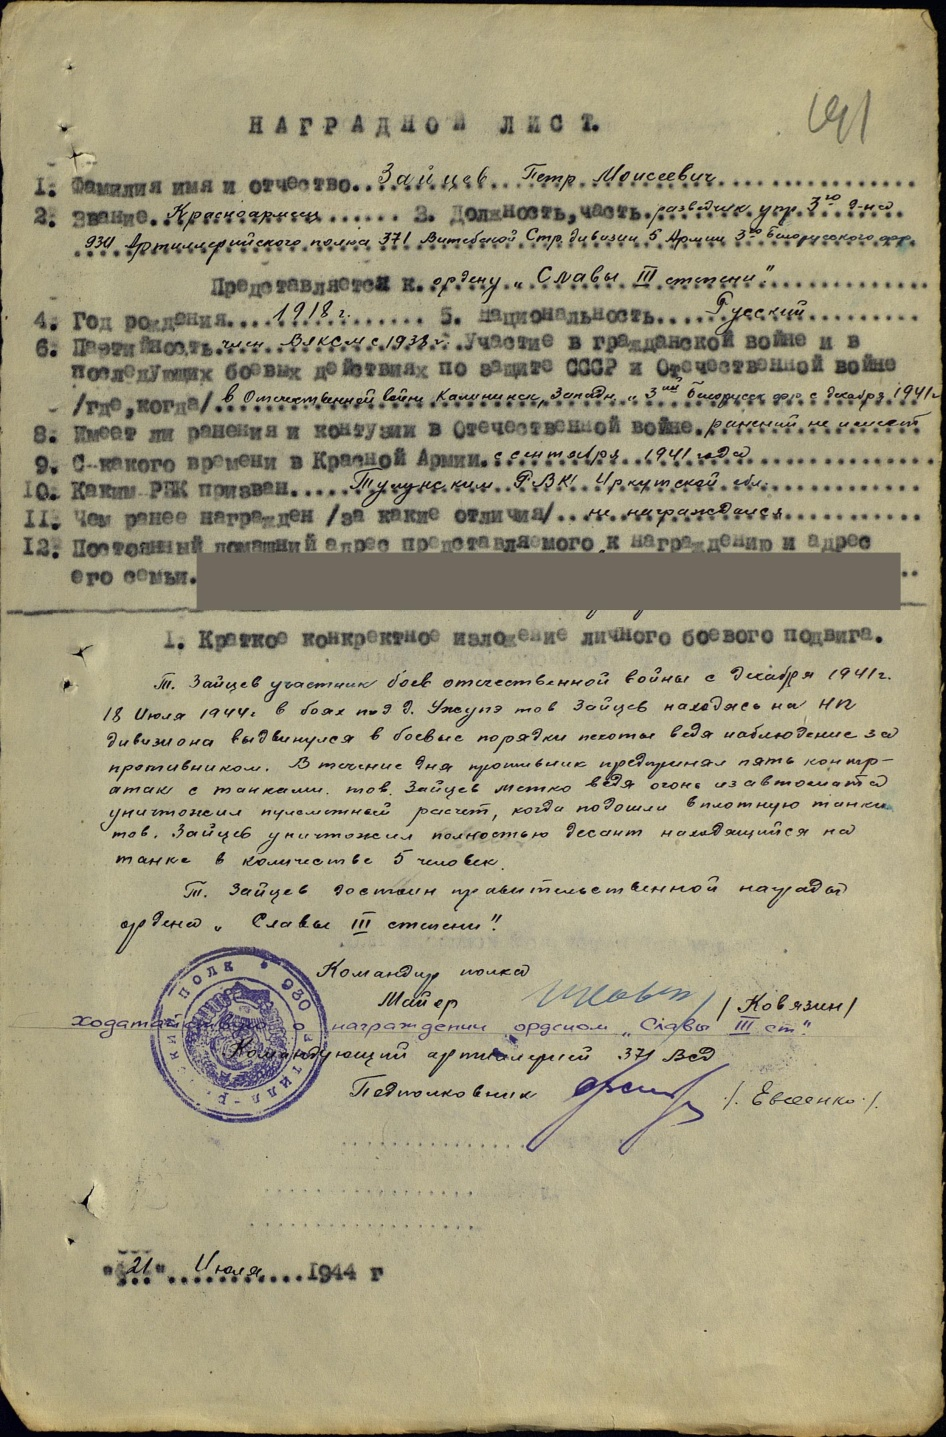 НАГРАДНОЙ ЛИСТ.
1. Фамилия имя и отчество..Зайцев Петр Моисеевич
2. Звание. Красноармеец 3. Должность, часть. разведчик упр. 3го д-на
930 Артиллерийского полка 371 Витебской Стр. дивизии 5 Армии 3го Белорусского фр.
Представляется к. ордену „Славы III степени"
4. Год рождения. 1918 г. 5. Национальность. Русский
6. Партийность. член ВЛКСМ с 1938 г. Участие в гражданской войне и в
последующих боевых действиях по защите СССР и Отечественной войне
/где, когда/ в Отечественной войне Калининск, Западн и 3ий Белорусск фр. с декабря 1941 г
8. Имеет ли ранения и контузии в Отечественной войне. ранений не имеет
9. С-какого времени в Красной Армии. с сентября 1941 года
10. Каким РВК призван. Тулунским РВК Иркутской обл.
11. Чем ранее награжден /за какие отличия/.. не награждался
12. Постоянный домашний адрес представляемого к награждению и адрес
его семьи.
1. Краткое конкректное изложение личного боевого подвига.
Т. Зайцев участник боев отечественной войны с декабря 1941 г.
18 Июля 1944 г в боях под д. Ужупэ тов Зайцев находясь на НП
дивизиона выдвинулся в боевые порядки пехоты ведя наблюдение за
противником. В течение дня противник предпринял пять контр-
атак с танками. тов. Зайцев метко ведя огонь из автомата
уничтожил пулеметный расчет, когда подошли вплотную танки
тов. Зайцев уничтожил полностью десант находящийся на
танке в количестве 5 человек.
Т. Зайцев достоин правительственной награды
ордена „Славы III степени".
Командир полка
Майор /Ковязин/
ходатайствую о награждении орденом „Славы III ст".
Командующий артиллерией 371 ВСД
Подполковник /. Евсеенко ./.
930 АРТИЛЛ-Р.СКИЙ ПОЛК
"21" Июля 1944 г